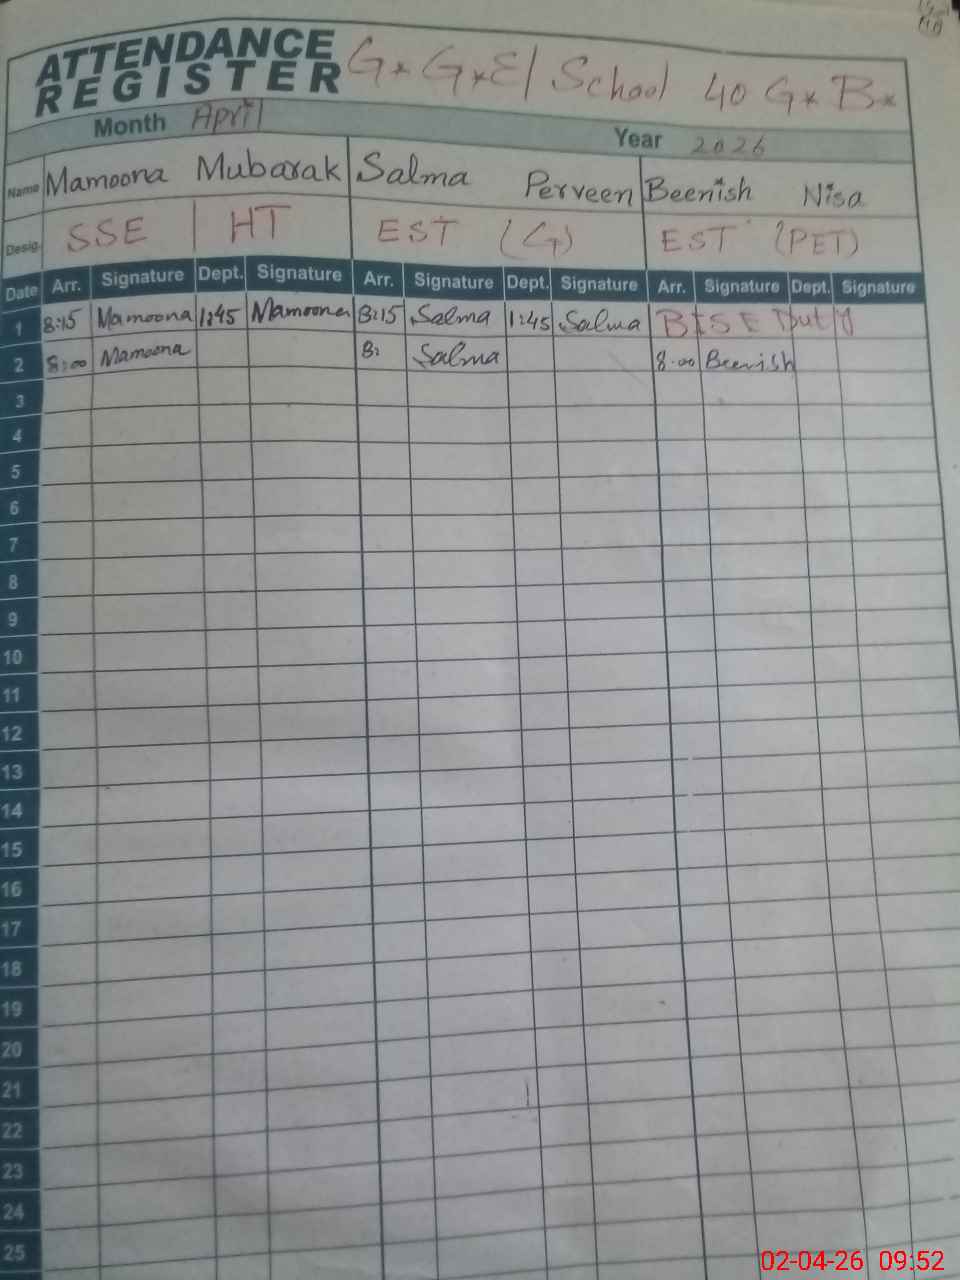 ATTENDANCE REGISTER G*G*E/ School 40 G*B*
Month April Year 2026
Name Mamoona Mubarak Salma Perveen Beenish Nisa
Desig. SSE / HT EST (G) EST (PET)
Date Arr. Signature Dept. Signature Arr. Signature Dept. Signature Arr. Signature Dept. Signature
1 8:15 Mamoona 1:45 Mamoona 8:15 Salma 1:45 Salma BISE Duty
2 8:00 Mamoona 8: Salma 8:00 Beenish
3
4
5
6
7
8
9
10
11
12
13
14
15
16
17
18
19
20
21
22
23
24
25
02-04-26 09:52